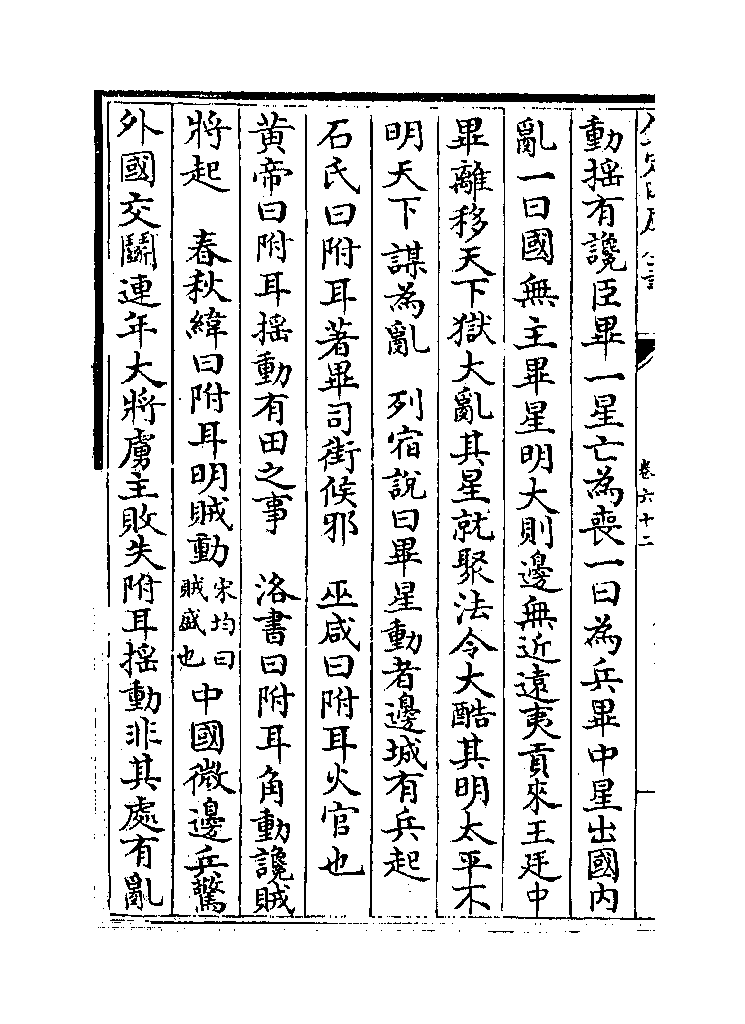 動揺有讒臣畢一星亡為喪一曰為兵畢中星出國内
亂一曰國無主畢星明大則邊無近遠夷貢來王廷中
畢離移天下獄大亂其星就聚法令大酷其明太平不
明天下謀為亂　列宿說曰畢星動者邊城有兵起
石氏曰附耳著畢司街候邪　巫咸曰附耳火官也
黄帝曰附耳揺動有田之事　洛書曰附耳角動讒賊
將起　春秋緯曰附耳明賊動宋均曰賊盛也中國微邊兵驚
外國交鬬連年大將虜主敗失附耳揺動非其處有亂
卷六十二